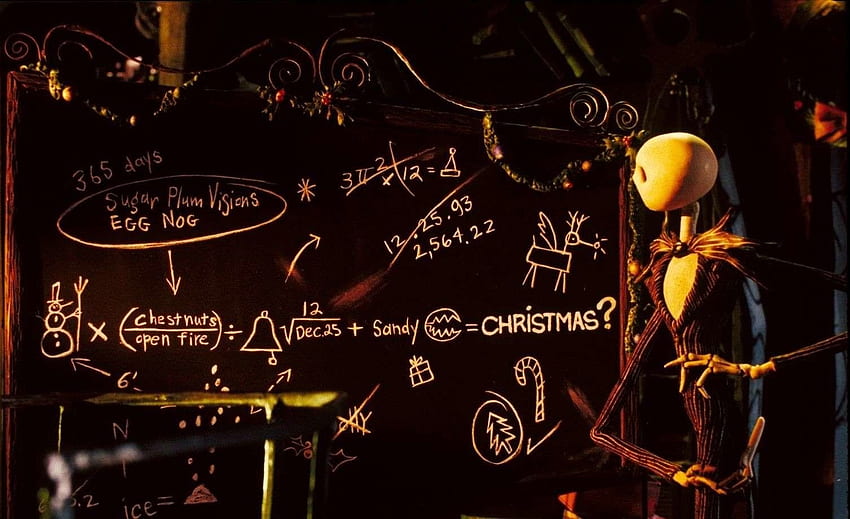 365 days
Sugar Plum Visions
EGG NOG
3π² × 12 =
12.25.93
2,564.22
× (chestnuts
open fire) ÷ √12
Dec.25 + Sandy = CHRISTMAS?
6'
N
ice=